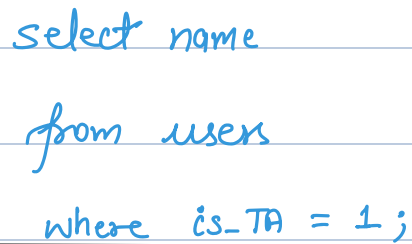 select name
from users
where is_TA = 1;